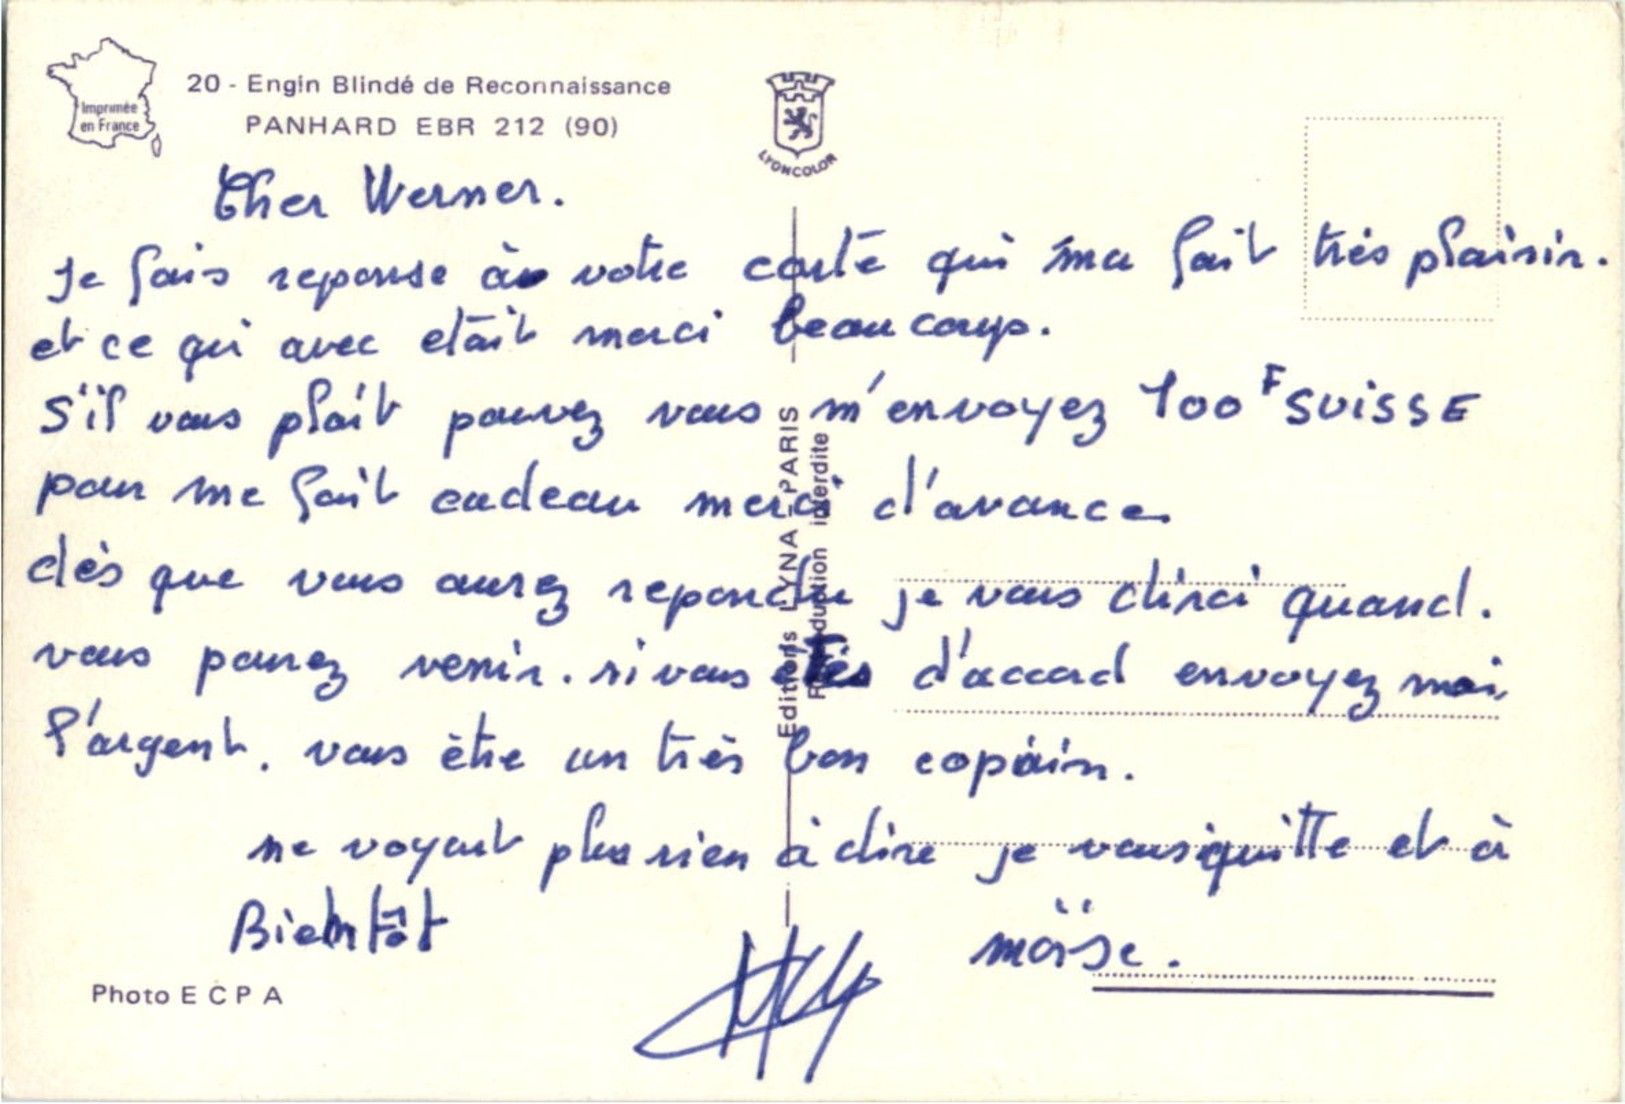 Imprimée
en France
20 - Engin Blindé de Reconnaissance
PANHARD EBR 212 (90)
LYONCOLOR
Cher Werner.
Je fais reponse à votre carte qui ma fait très plaisir.
et ce qui avec etait merci beaucoup.
S'il vous plaît pouvez vous m'envoyez 100 F SUISSE
pour me fait cadeau merci d'avance.
dès que vous aurez repondu je vous dirai quand.
vous pouvez venir. si vous êtes d'accord envoyez moi,
l'argent. vous être un très bon copain.
ne voyant plus rien à dire je vous quitte et à
Bientôt
moïse.
Editions LYNA - PARIS
Reproduction interdite
Photo E C P A